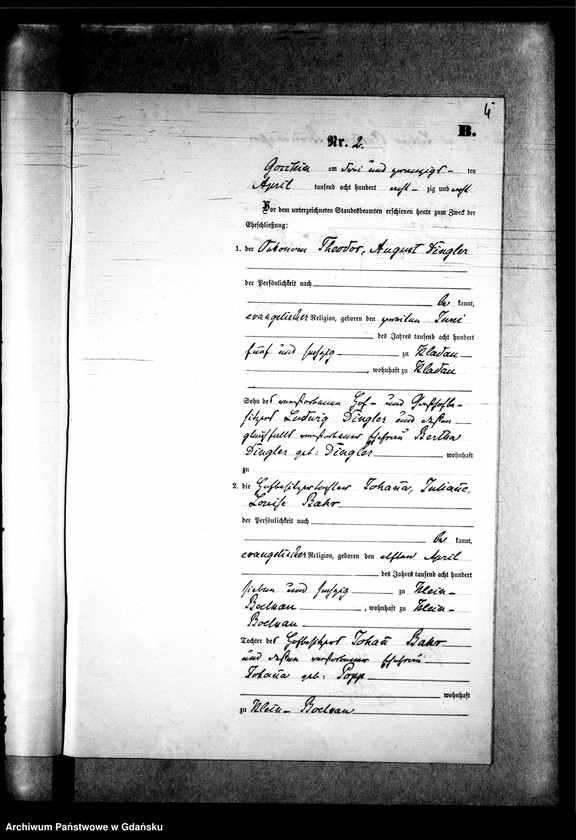 4
B.
Nr. 2.
am drei und zwanzigs- ten
April tausend acht hundert acht- zig und acht
Vor dem unterzeichneten Standesbeamten erschienen heute zum Zweck der
Eheschließung:
1. der Oekonom Theodor, August Dingler
der Persönlichkeit nach
be kannt,
evangelischer Religion, geboren den zweiten Juni
des Jahres tausend acht hundert
fünf und sechzig zu Kladau
, wohnhaft zu Kladau
Sohn des verstorbenen Hof- und Gasthofbe-
sitzers Ludwig Dingler und dessen
gleichfalls verstorbener Ehefrau Bertha
Dingler geb: Dingler wohnhaft
zu
2. die Hofbesitzertochter Johana, Juliane,
Louise Bahr
der Persönlichkeit nach
be kannt,
evangelischer Religion, geboren den elften April
des Jahres tausend acht hundert
sieben und sechzig zu Klein-
Boelkau , wohnhaft zu Klein-
Boelkau
Tochter des Hofbesitzers Johan Bahr
und dessen verstorbener Ehefrau
Johana geb: Popp
wohnhaft
zu Klein- Boelkau
Archiwum Państwowe w Gdańsku